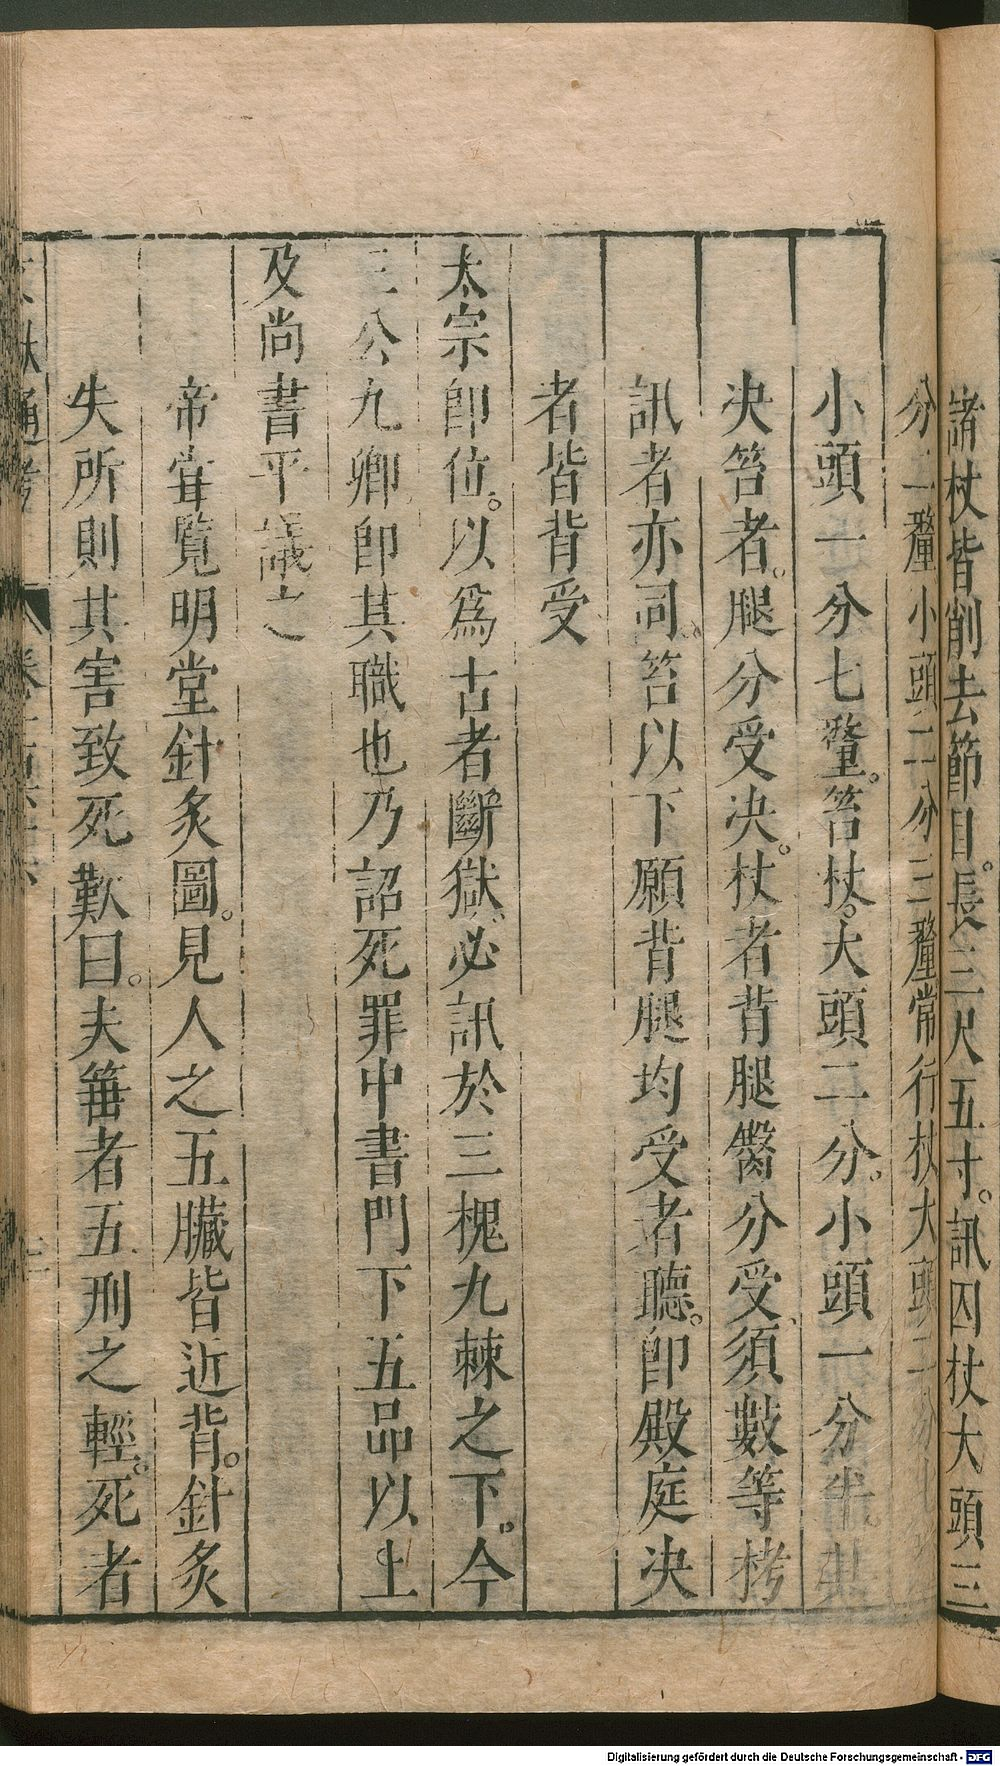 諸杖皆削去節目。長三尺五寸。訊囚杖大頭三
分二釐小頭二分三釐常行杖大頭二分七
小頭一分七釐。笞杖。大頭二分。小頭一分半。其
決笞者。腿分受決。杖者背腿臋分受、須數等拷
訊者亦同。笞以下願背腿均受者聽。卽殿庭決
者皆背受
太宗卽位。以爲古者斷獄。必訊於三槐九棘之下。今
三公九卿卽其職也乃詔死罪中書門下五品以上
及尚書平議之
帝甞覧明堂針炙圖。見人之五臟皆近背。針炙
失所則其害致死歎曰。夫箠者五刑之輕。死者
文獻通考
Digitalisierung gefördert durch die Deutsche Forschungsgemeinschaft - DFG